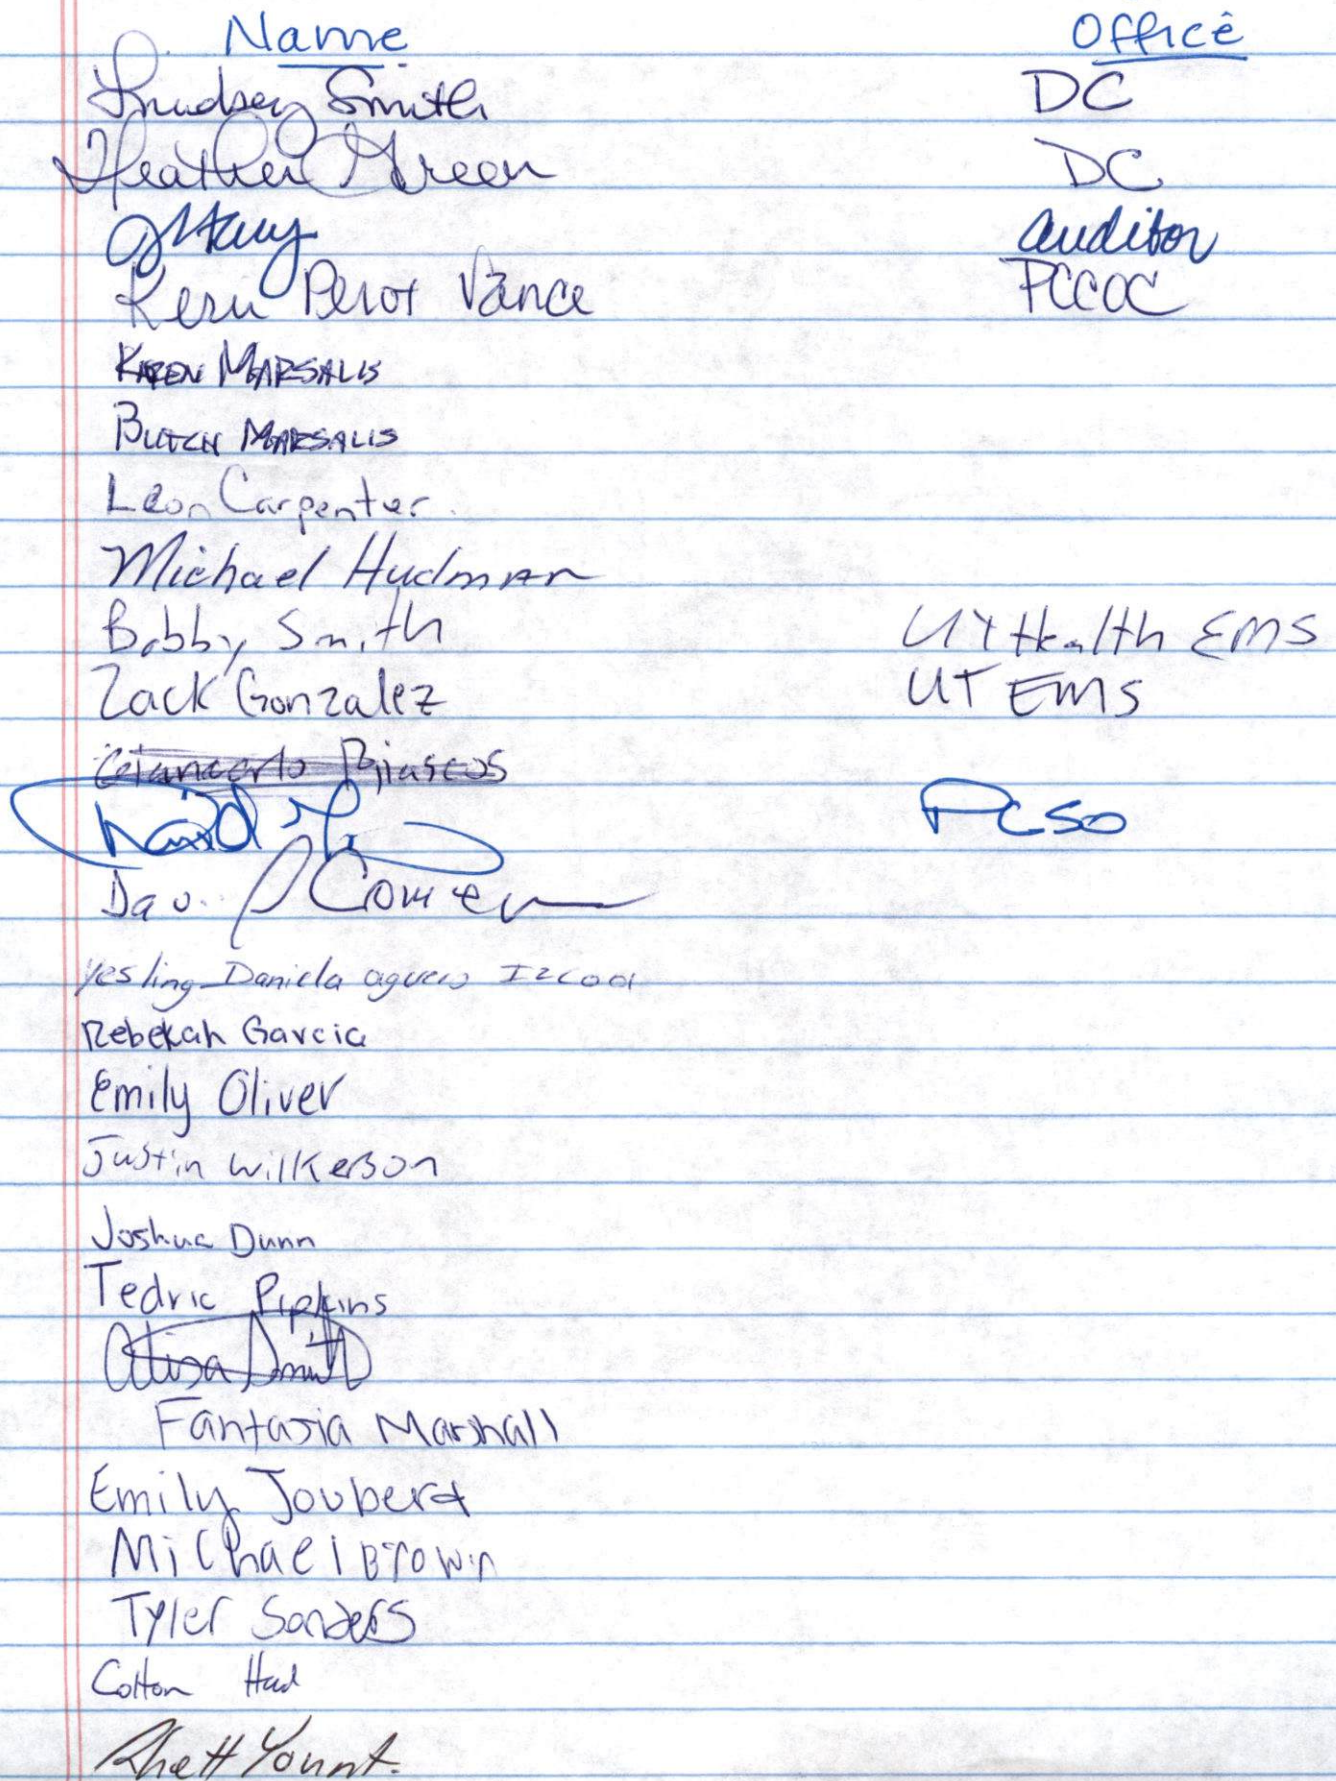 Name Office
Lindsey Smith DC
Heather Green DC
auditor
Keri Perot Vance PCCOC
KAREN MARSALIS
BUTCH MARSALIS
Leon Carpenter
Michael Hudman
Bobby Smith UT Health EMS
Zack Gonzalez UT EMS
David PCSO
Yesling Daniela aguero
Rebekah Garcia
Emily Oliver
Justin WilkerSon
Joshua Dunn
Tedric Pipkins
Alisa Smith
Fantasia Marshall
Emily Joubert
Michael Brown
Tyler Sanders
Colton
Rhett Yount